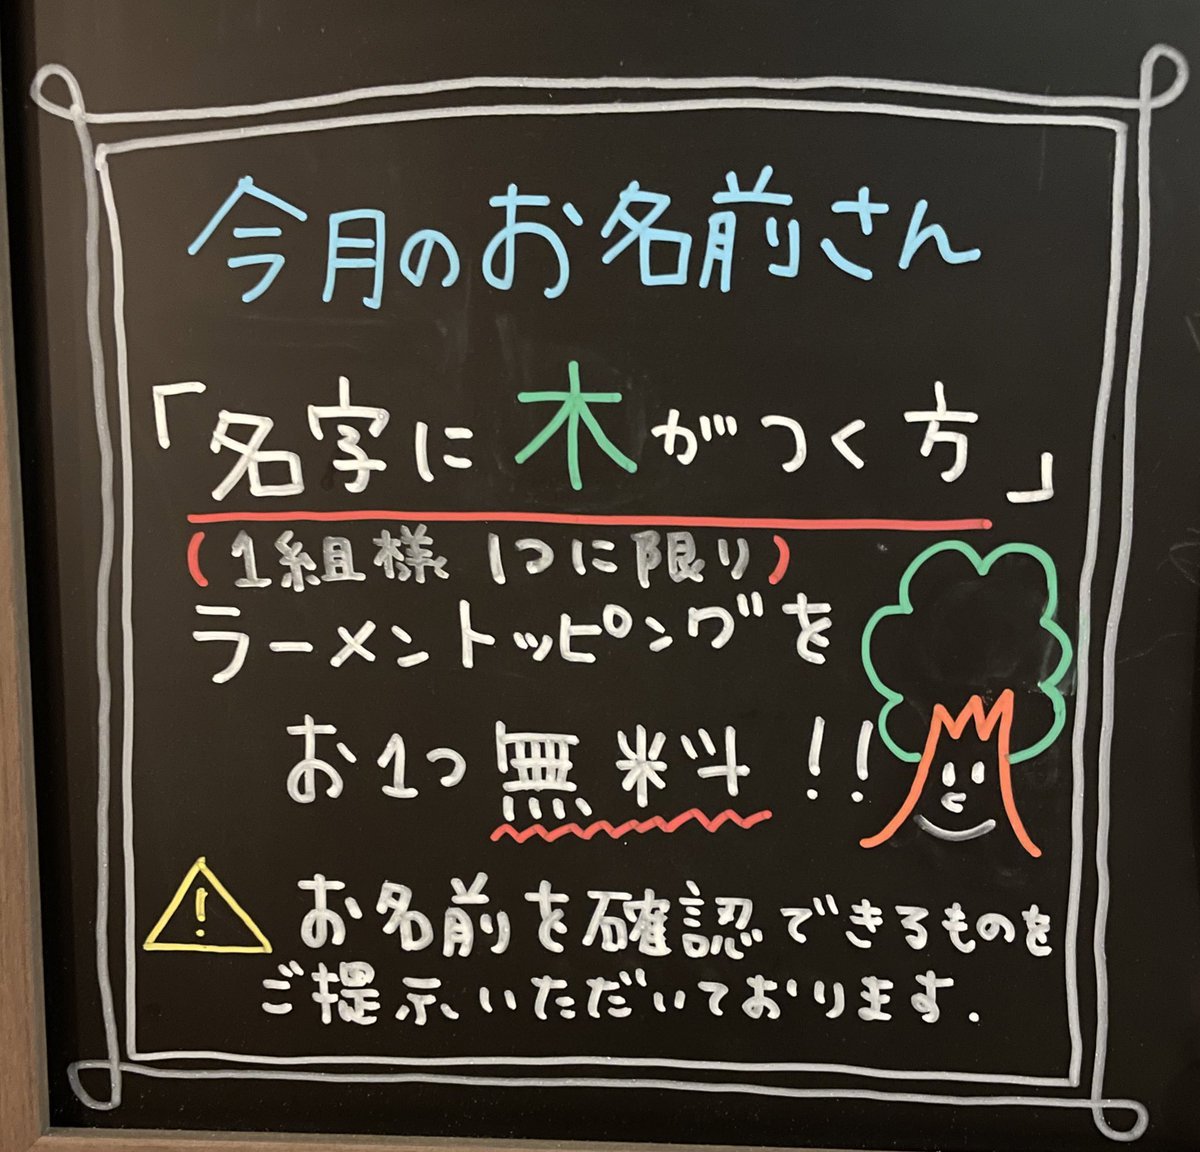 今月のお名前さん
「名字に木がつく方」
(1組様1つに限り)
ラーメントッピングを
お1つ無料!!
! お名前を確認できるものを
ご提示いただいております.